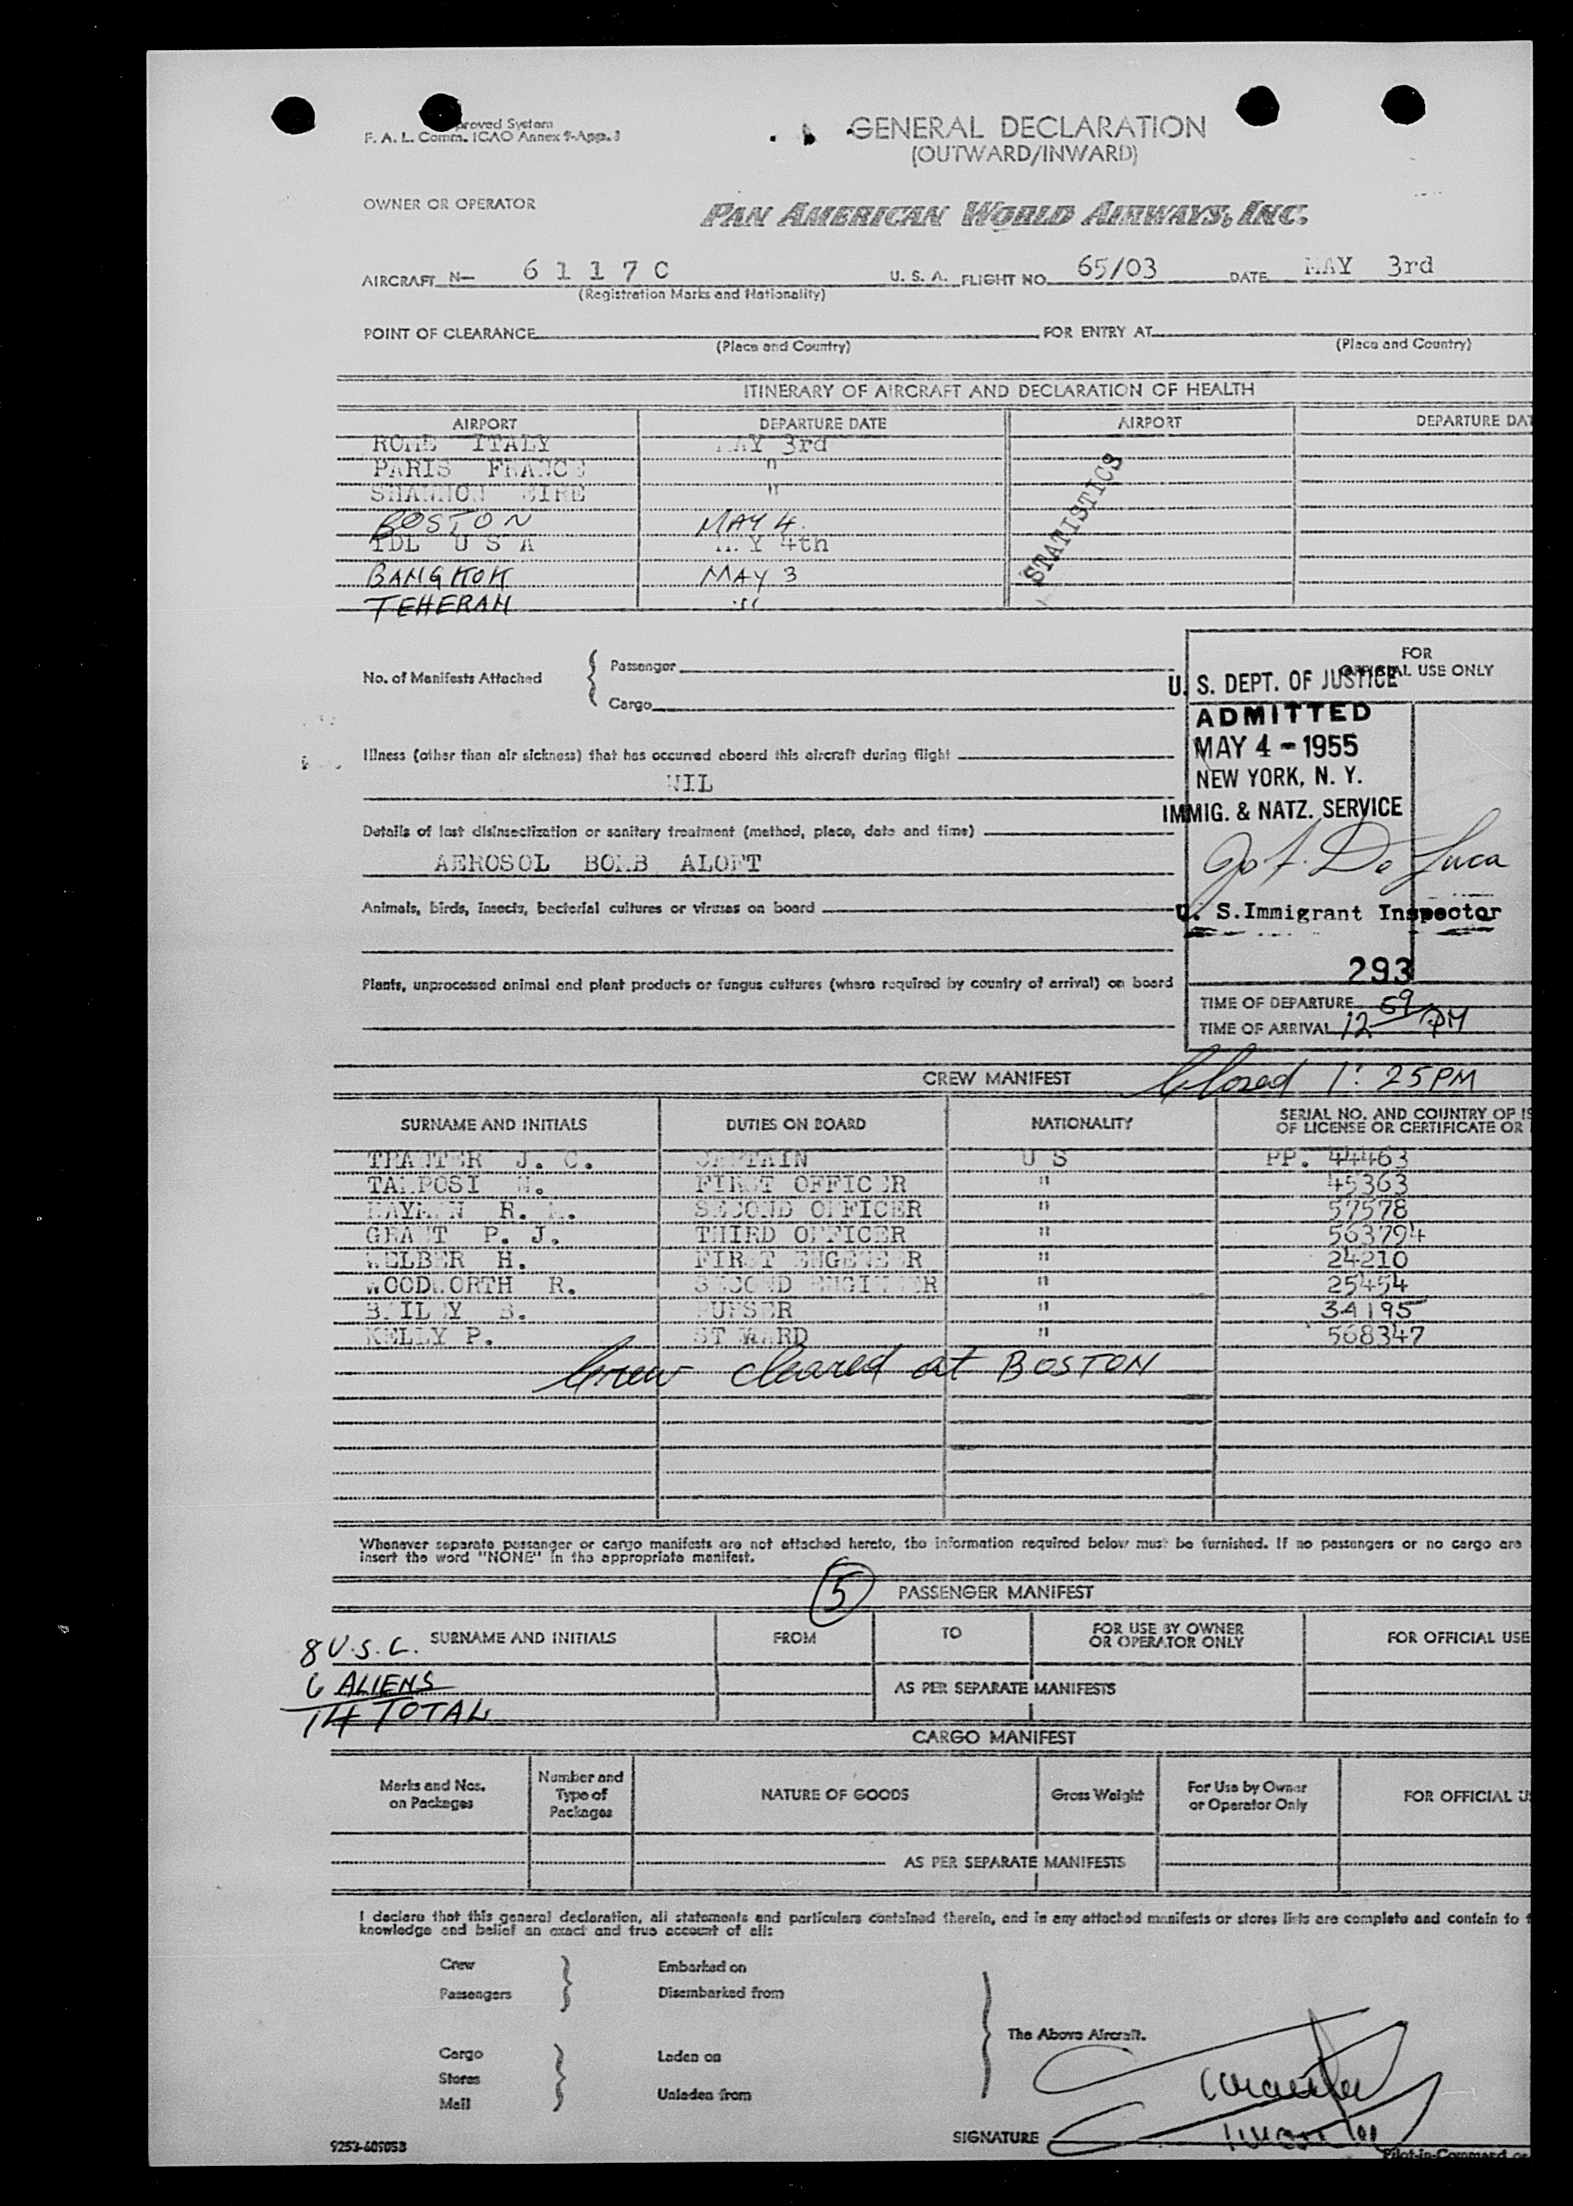 proved System
F. A. L. Comm. ICAO Annex 9-App. 3
GENERAL DECLARATION
(OUTWARD/INWARD)
OWNER OR OPERATOR
PAN AMERICAN WORLD AIRWAYS, INC.
AIRCRAFT N— 6 1 1 7 C U. S. A. FLIGHT NO. 65/03 DATE MAY 3rd
(Registration Marks and Nationality)
POINT OF CLEARANCE FOR ENTRY AT
(Place and Country) (Place and Country)
ITINERARY OF AIRCRAFT AND DECLARATION OF HEALTH
AIRPORT DEPARTURE DATE AIRPORT DEPARTURE DAT
ROME ITALY MAY 3rd
PARIS FRANCE "
SHANNON EIRE "
BOSTON MAY 4.
IDL U S A MAY 4th
BANGKOK MAY 3
TEHERAN "
STATISTICS
No. of Manifests Attached
Passenger
Cargo
FOR
OFFICIAL USE ONLY
U. S. DEPT. OF JUSTICE
ADMITTED
MAY 4 - 1955
NEW YORK, N. Y.
IMMIG. & NATZ. SERVICE
De Luca
U. S. Immigrant Inspector
293
Illness (other than air sickness) that has occurred aboard this aircraft during flight
NIL
Details of last disinsectization or sanitary treatment (method, place, date and time)
AEROSOL BOMB ALOFT
Animals, birds, insects, bacterial cultures or viruses on board
Plants, unprocessed animal and plant products or fungus cultures (where required by country of arrival) on board
TIME OF DEPARTURE
TIME OF ARRIVAL 12 59 PM
CREW MANIFEST Closed 1:25PM
SURNAME AND INITIALS DUTIES ON BOARD NATIONALITY SERIAL NO. AND COUNTRY OF IS
OF LICENSE OR CERTIFICATE OR
TRANTER J. C. CAPTAIN U S PP. 44463
TAMPOSI N. FIRST OFFICER " 45363
HAYMAN R. SECOND OFFICER " 57578
GRANT P. J. THIRD OFFICER " 563794
WELBER H. FIRST ENGENEER " 24210
WOODWORTH R. SECOND ENGINEER " 25454
BAILEY S. PURSER " 34195
KELLY P. STEWARD " 568347
Crew cleared at BOSTON
Whenever separate passenger or cargo manifests are not attached hereto, the information required below must be furnished. If no passengers or no cargo are
insert the word "NONE" in the appropriate manifest.
5 PASSENGER MANIFEST
SURNAME AND INITIALS FROM TO FOR USE BY OWNER
OR OPERATOR ONLY FOR OFFICIAL USE
8 U.S.C.
6 ALIENS
14 TOTAL
AS PER SEPARATE MANIFESTS
CARGO MANIFEST
Marks and Nos.
on Packages
Number and
Type of
Packages
NATURE OF GOODS
Gross Weight
For Use by Owner
or Operator Only
FOR OFFICIAL U
AS PER SEPARATE MANIFESTS
I declare that this general declaration, all statements and particulars contained therein, and in any attached manifests or stores lists are complete and contain to
knowledge and belief an exact and true account of all:
Crew Embarked on
Passengers Disembarked from
The Above Aircraft.
Cargo Laden on
Stores
Mail Unladen from
Tranter
SIGNATURE Tranter
Pilot-in-Command or
9253-605053